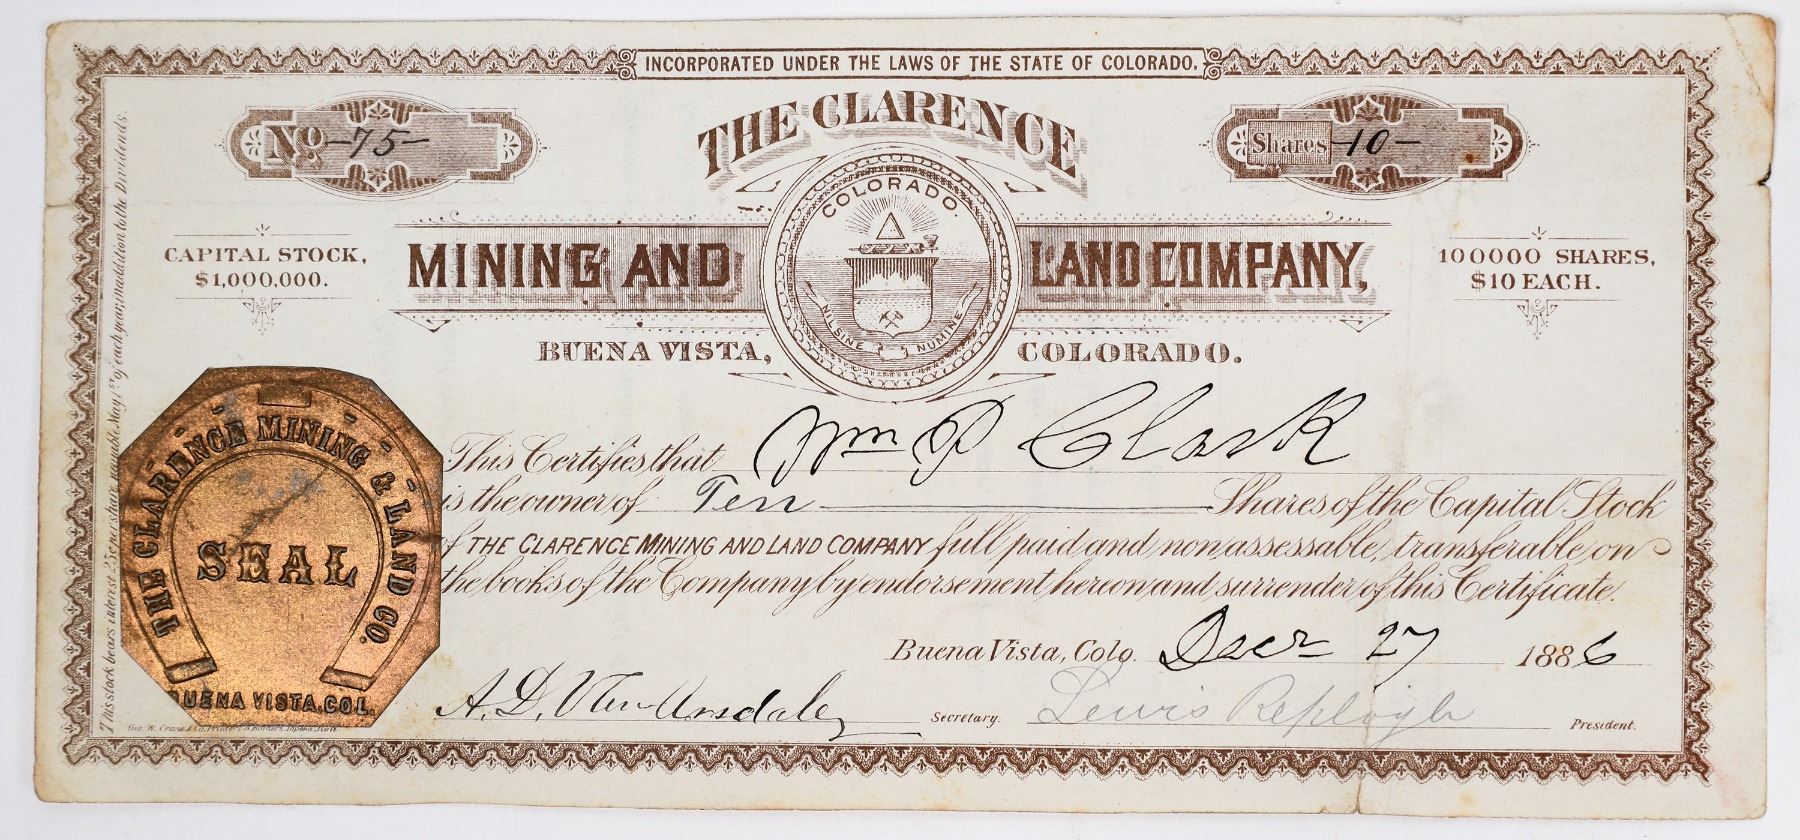 INCORPORATED UNDER THE LAWS OF THE STATE OF COLORADO.
No. -75-
THE CLARENCE
Shares -10-
COLORADO.
CAPITAL STOCK,
$1,000,000.
MINING AND LAND COMPANY,
100000 SHARES,
$10 EACH.
NIL SINE NUMINE
BUENA VISTA, COLORADO.
This Certifies that Wm P Clark
is the owner of Ten Shares of the Capital Stock
of THE CLARENCE MINING AND LAND COMPANY full paid and non assessable, transferable on
the books of the Company by endorsement hereon and surrender of this Certificate.
Buena Vista, Colo. Decr 27 1886
A. D. Secretary. Lewis Replogle President.
THE CLARENCE MINING & LAND CO.
SEAL
BUENA VISTA. COL.
Geo. W. Crane & Co. Printers & Binders, Topeka, Kans
This stock bears interest 25c per share payable May 1st of each year in addition to the Dividends.